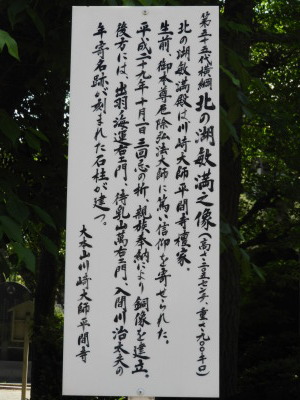 第五十五代横綱 北の湖敏満之像(高さ二三五センチ、重さ九〇〇キロ)
北の湖敏満殿は川崎大師平間寺檀家。
生前、御本尊厄除弘法大師に篤い信仰を寄せられた。
平成二十九年十月一日三回忌の祈、親族奉納により銅像を建立。
後方には、出羽海運右エ門、待乳山萬右エ門、入間川治太夫の
年寄名跡が刻まれた石柱が建つ。
大本山川崎大師平間寺